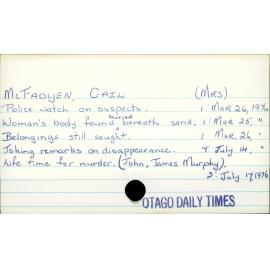 McFADYEN, GAIL (MRS)
Police watch on suspects. 1: Mar 24, 1976
Woman's body found buried beneath sand. 1: Mar 25, "
Belongings still sought. 1: Mar 26, "
Joking remarks on disappearance. 4: July 14, "
Life time for murder. (John, James Murphy).
2: July 17, 1976
OTAGO DAILY TIMES